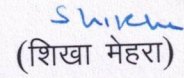 Shikha
(शिखा मेहरा)